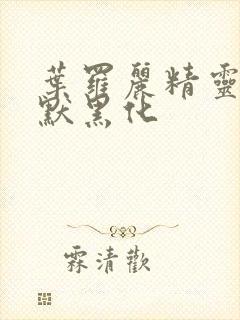 葉羅麗精靈
默黑化
霖清歡